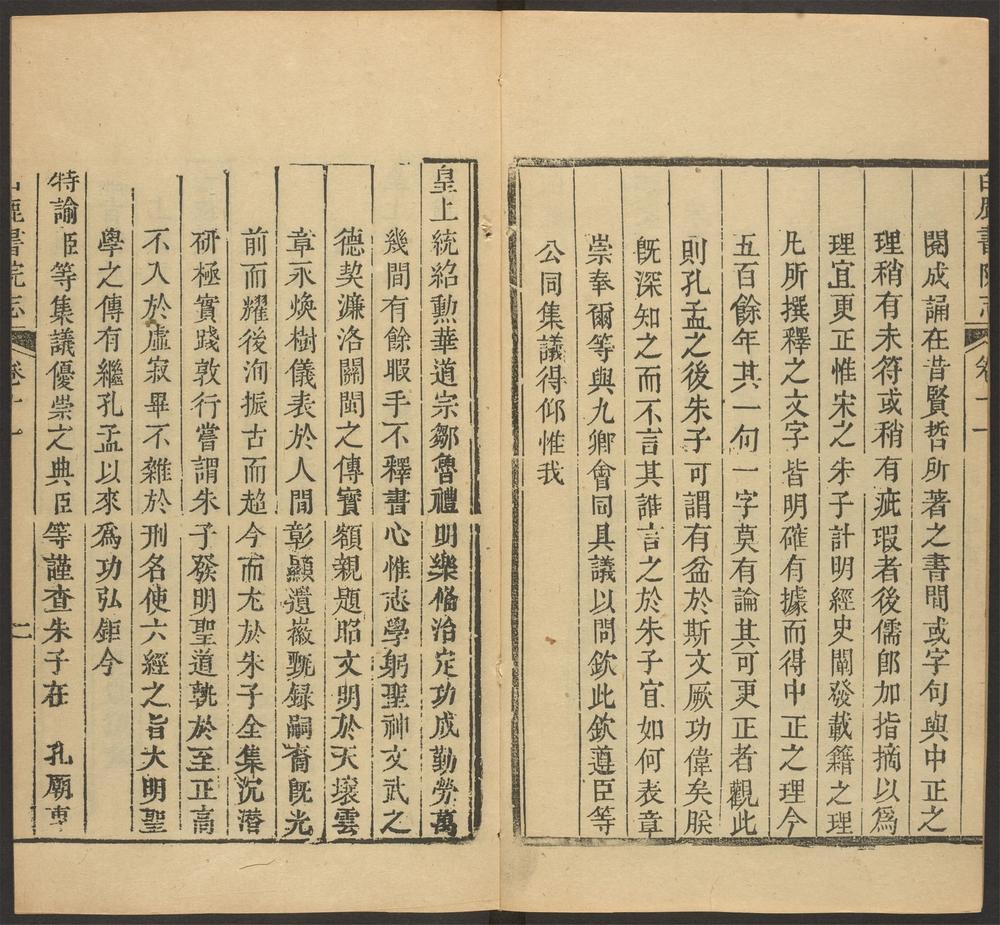 白鹿書院志 卷十一
閱成誦在昔賢哲所著之書間或字句與中正之
理稍有未符或稍有疵瑕者後儒即加指摘以為
理宜更正惟宋之 朱子計明經史闡發載籍之理
凡所撰釋之文字皆明確有據而得中正之理今
五百餘年其一句一字莫有論其可更正者觀此
則孔孟之後朱子可謂有益於斯文厥功偉矣朕
旣深知之而不言其誰言之於朱子宜如何表章
崇奉爾等與九卿會同具議以問欽此欽遵臣等
公同集議得仰惟我
皇上統紹勳華道宗鄒魯禮明樂備治定功成勤勞萬
幾間有餘暇手不釋書心惟志學躬聖神文武之
德契濂洛關閩之傳實額親題昭文明於天壤雲
章永煥樹儀表於人間彰顯遺徽甄録嗣裔旣光
前而耀後洵振古而超今而尤於朱子全集沉潛
研極實踐敦行嘗謂朱子發明聖道軌於至正高
不入於虛寂畢不雜於刑名使六經之旨大明聖
學之傳有繼孔孟以來爲功弘鉅今
特諭臣等集議優崇之典臣等謹查朱子在 孔廟東
白鹿書院志 卷十一 二